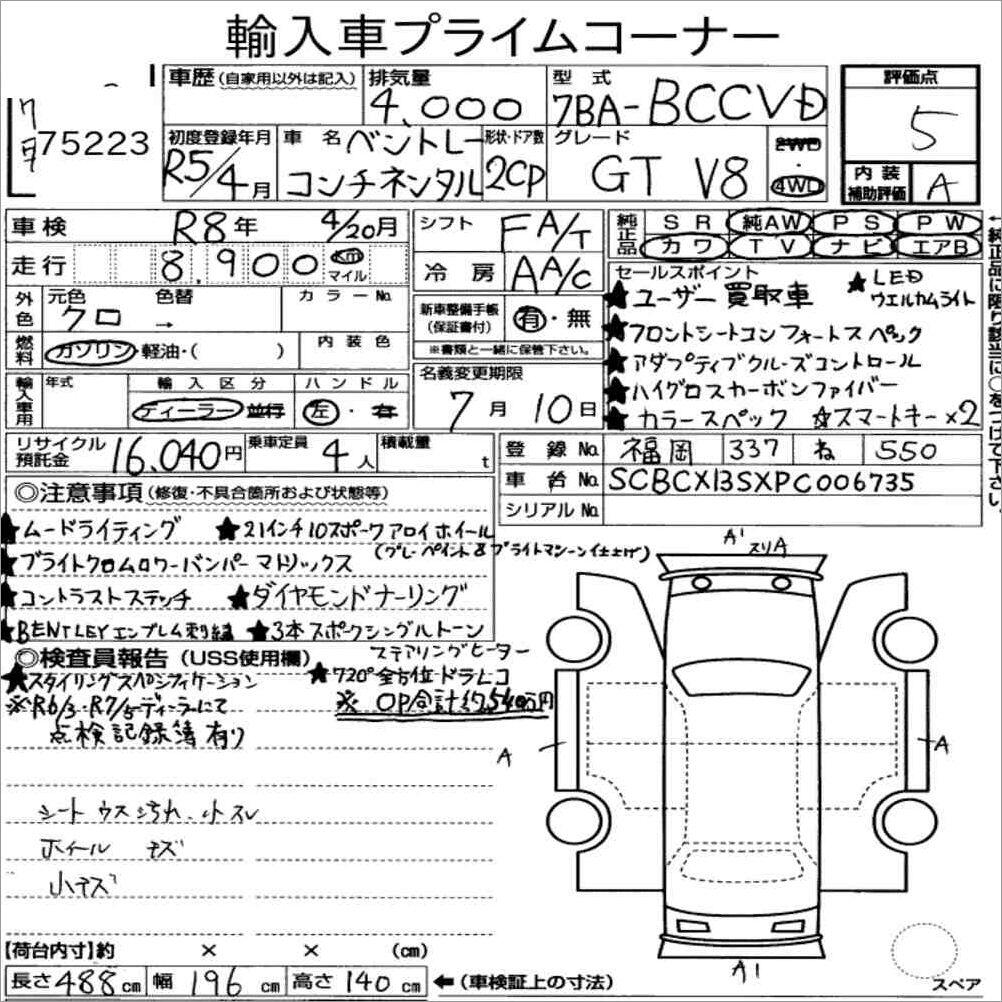 輸入車プライムコーナー
75223
車歴(自家用以外は記入)
排気量 4,000
型式 7BA-BCCVD
評価点 5
初度登録年月 R5/4月
車名 ベントレー コンチネンタル
形状・ドア数 2CP
グレード GT V8
2WD・4WD
内装補助評価 A
車検 R8年 4/20月
シフト FA/T
純正品 SR 純AW PS PW
カワ TV ナビ エアB
走行 8,900 km マイル
冷房 AA/C
セールスポイント
★ユーザー買取車 ★LEDウエルカムライト
★フロントシートコンフォートスペック
★アダプティブクルーズコントロール
★ハイグロスカーボンファイバー
★カラースペック ☆スマートキー×2
外色 元色 クロ 色替 → カラーNo.
燃料 ガソリン・軽油・( ) 内装色
新車整備手帳(保証書付) 有・無
※書類と一緒に保管下さい。
輸入車用 年式 輸入区分 ハンドル
ディーラー・並行 左・右
名義変更期限 7月10日
リサイクル預託金 16,040円
乗車定員 4人
積載量 t
登録No. 福岡 337 ね 550
車台No. SCBCX13SXPC006735
シリアルNo.
◎注意事項(修復・不具合箇所および状態等)
★ムードライティング ★21インチ10スポークアロイホイール
(グレーペイント&ブライトマシーン仕上げ)
★ブライトクロムロワーバンパーマトリックス
★コントラストステッチ ★ダイヤモンドナーリング
★BENTLEYエンブレム刺繍 ★3本スポークシングルトーン
ステアリングヒーター
◎検査員報告(USS使用欄)
★スタイリングスペシフィケーション ★720°全方位ドラレコ
※R6/3 R7/5ディーラーにて
点検記録簿有り
※OP合計約540万円
シートウス汚れ、小スレ
ホイール キズ
小キズ
A1 スリA
A
A
A1
【荷台内寸】約 × × (cm)
長さ488cm 幅196cm 高さ140cm ←(車検証上の寸法)
スペア